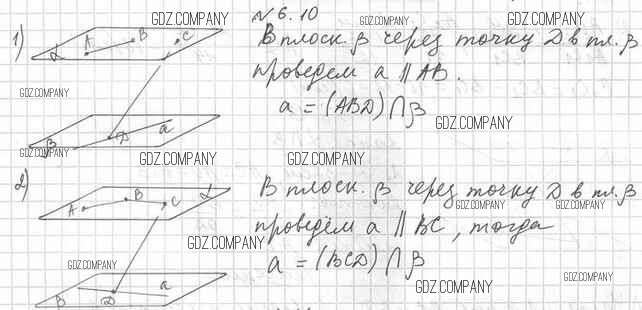 GDZ.COMPANY
№ 6.10
GDZ.COMPANY
GDZ.COMPANY
1)
A
B
C
α
В плоск. β через точку D в пл. β
проведём a ∥ AB.
GDZ.COMPANY
a = (ABD) ∩ β
GDZ.COMPANY
β
D
a
GDZ.COMPANY
GDZ.COMPANY
GDZ.COMPANY
2)
A
B
C
α
В плоск. β через точку D в пл. β
GDZ.COMPANY
GDZ.COMPANY
проведём a ∥ BC, тогда
GDZ.COMPANY
a = (BCD) ∩ β
GDZ.COMPANY
GDZ.COMPANY
GDZ.COMPANY
β
D
a